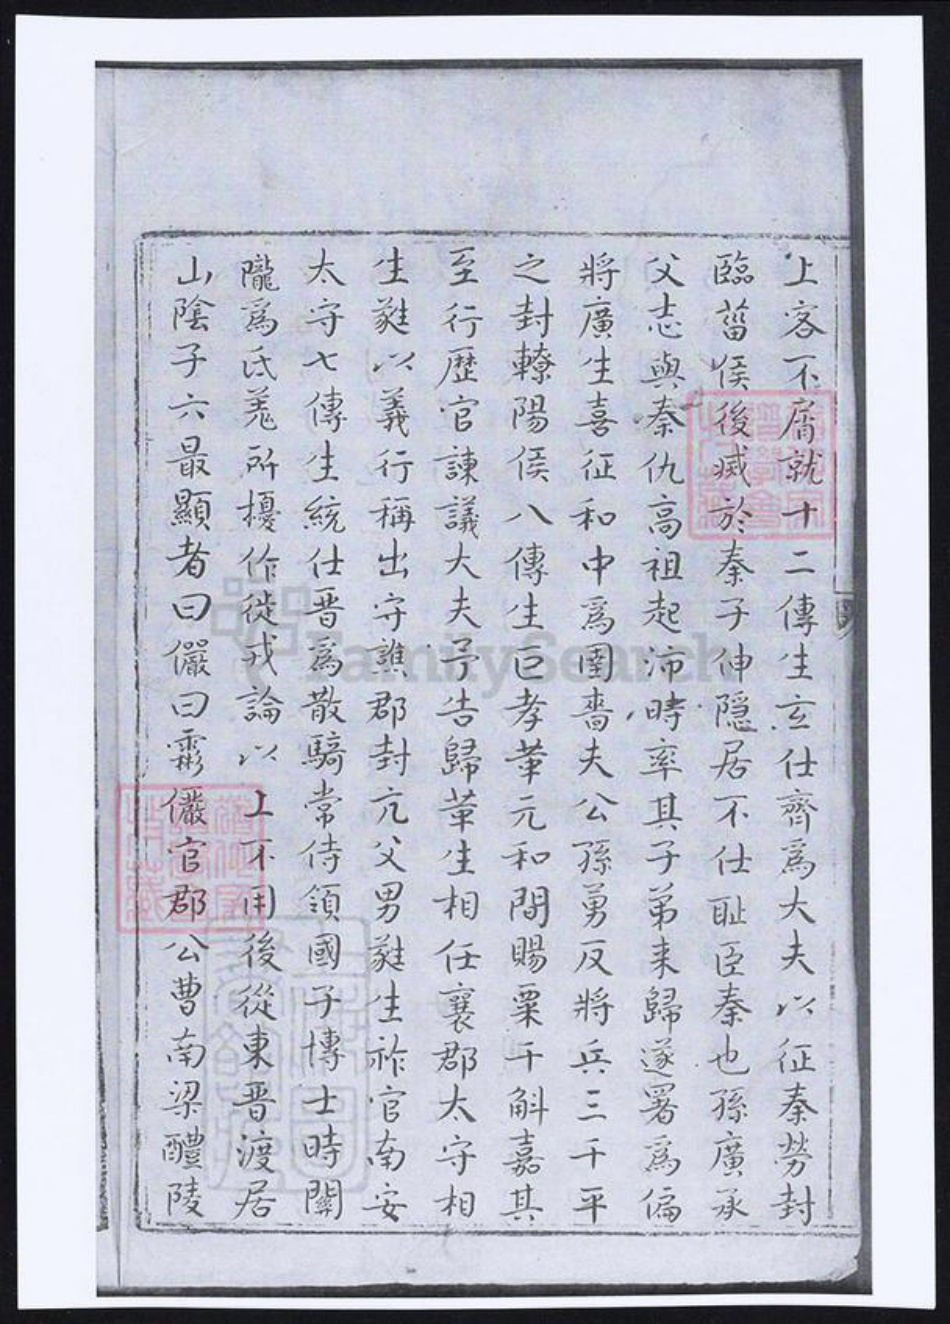 上客不屑就十二傳生玄仕齊爲大夫以征秦勞封
臨菑侯後滅於秦子伸隱居不仕耻臣秦也孫廣承
父志與秦仇高祖起沛時率其子弟来歸遂署爲偏
將廣生喜征和中爲圉嗇夫公孫勇反將兵三千平
之封轑陽侯八傳生巨孝革元和間賜粟千斛嘉其
至行歴官諫議大夫予告歸革生相任襄郡太守相
生蕤以義行稱出守譙郡封亢父男蕤生祚官南安
太守七傳生統仕晋爲散騎常侍領國子博士時關
隴爲氐羗所擾作徙戎論以 上不用後從東晋渡居
山陰子六最顯者曰儼曰霦儼官郡公曹南梁醴陵
FamilySearch